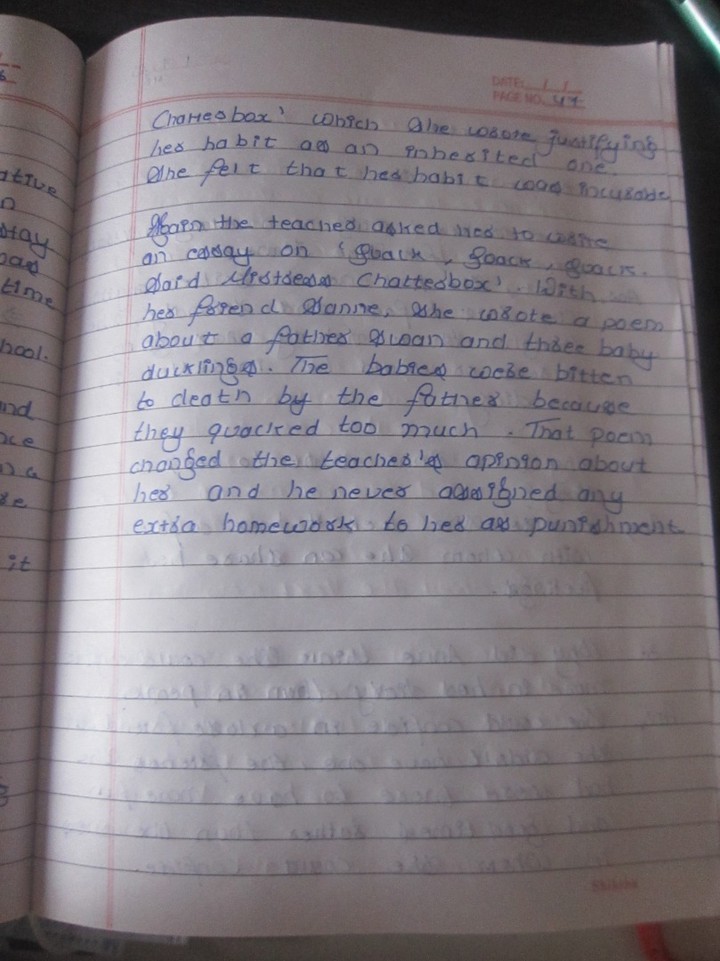 DATE: / /
PAGE NO. 47
Chatterbox' which she wrote justifying
her habit as an inherited one.
She felt that her habit was incurable
Again the teacher asked her to write
an essay on 'Quack, Quack, Quack.
Said Mistress Chatterbox'. With
her friend Sanne, she wrote a poem
about a father swan and three baby
ducklings. The babies were bitten
to death by the father because
they quacked too much. That poem
changed the teacher's opinion about
her and he never assigned any
extra homework to her as punishment.
ative
n
stay
time
hool.
nd
nce
n a
it